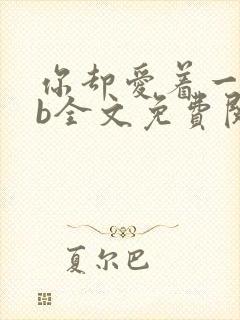 你却爱着一
b全文免費閱
夏尔巴